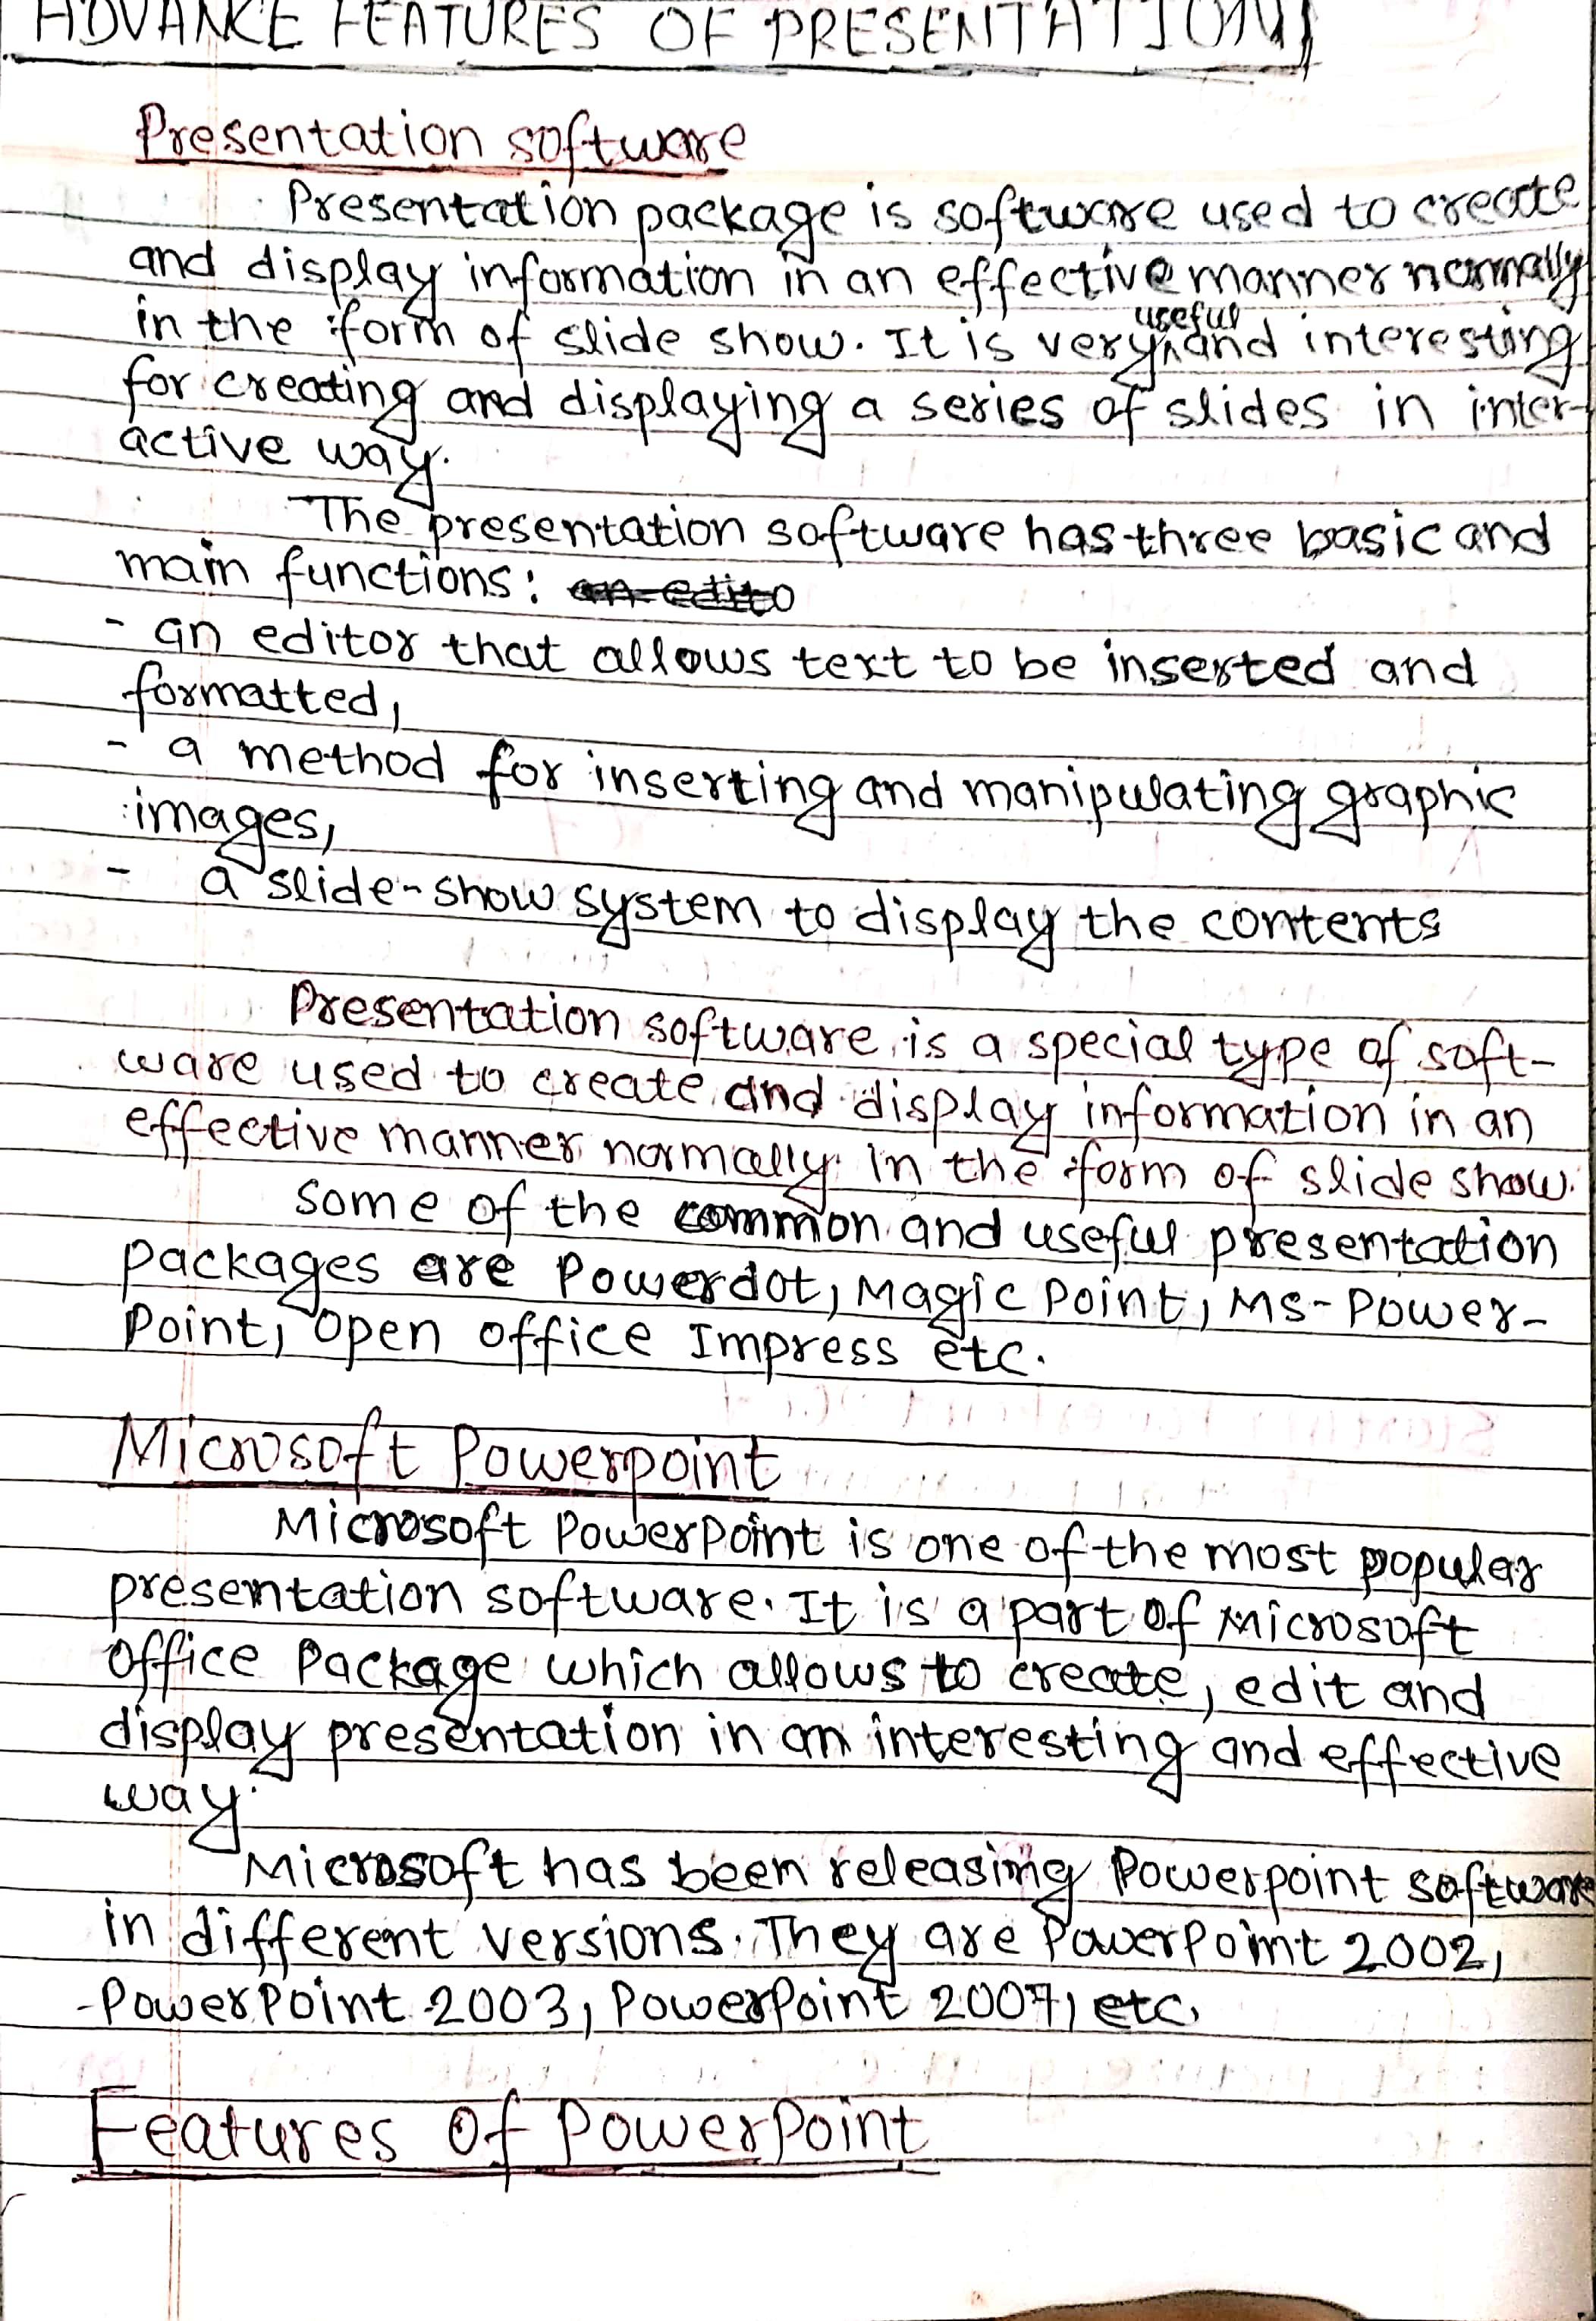 ADVANCE FEATURES OF PRESENTATION
Presentation software
Presentation package is software used to create
and display information in an effective manner normally
in the form of slide show. It is very useful and interesting
for creating and displaying a series of slides in inter-
active way.
The presentation software has three basic and
main functions: an edito
- an editor that allows text to be inserted and
formatted,
- a method for inserting and manipulating graphic
images,
- a slide-show system to display the contents
Presentation software is a special type of soft-
ware used to create and display information in an
effective manner normally in the form of slide show.
Some of the common and useful presentation
packages are Powerdot, Magic Point, MS-Power-
Point, Open office Impress etc.
Microsoft Powerpoint
Microsoft PowerPoint is one of the most popular
presentation software. It is a part of Microsoft
Office Package which allows to create, edit and
display presentation in an interesting and effective
way.
Microsoft has been releasing Powerpoint software
in different versions. They are PowerPoint 2002,
PowerPoint 2003, PowerPoint 2007, etc.
Features Of PowerPoint